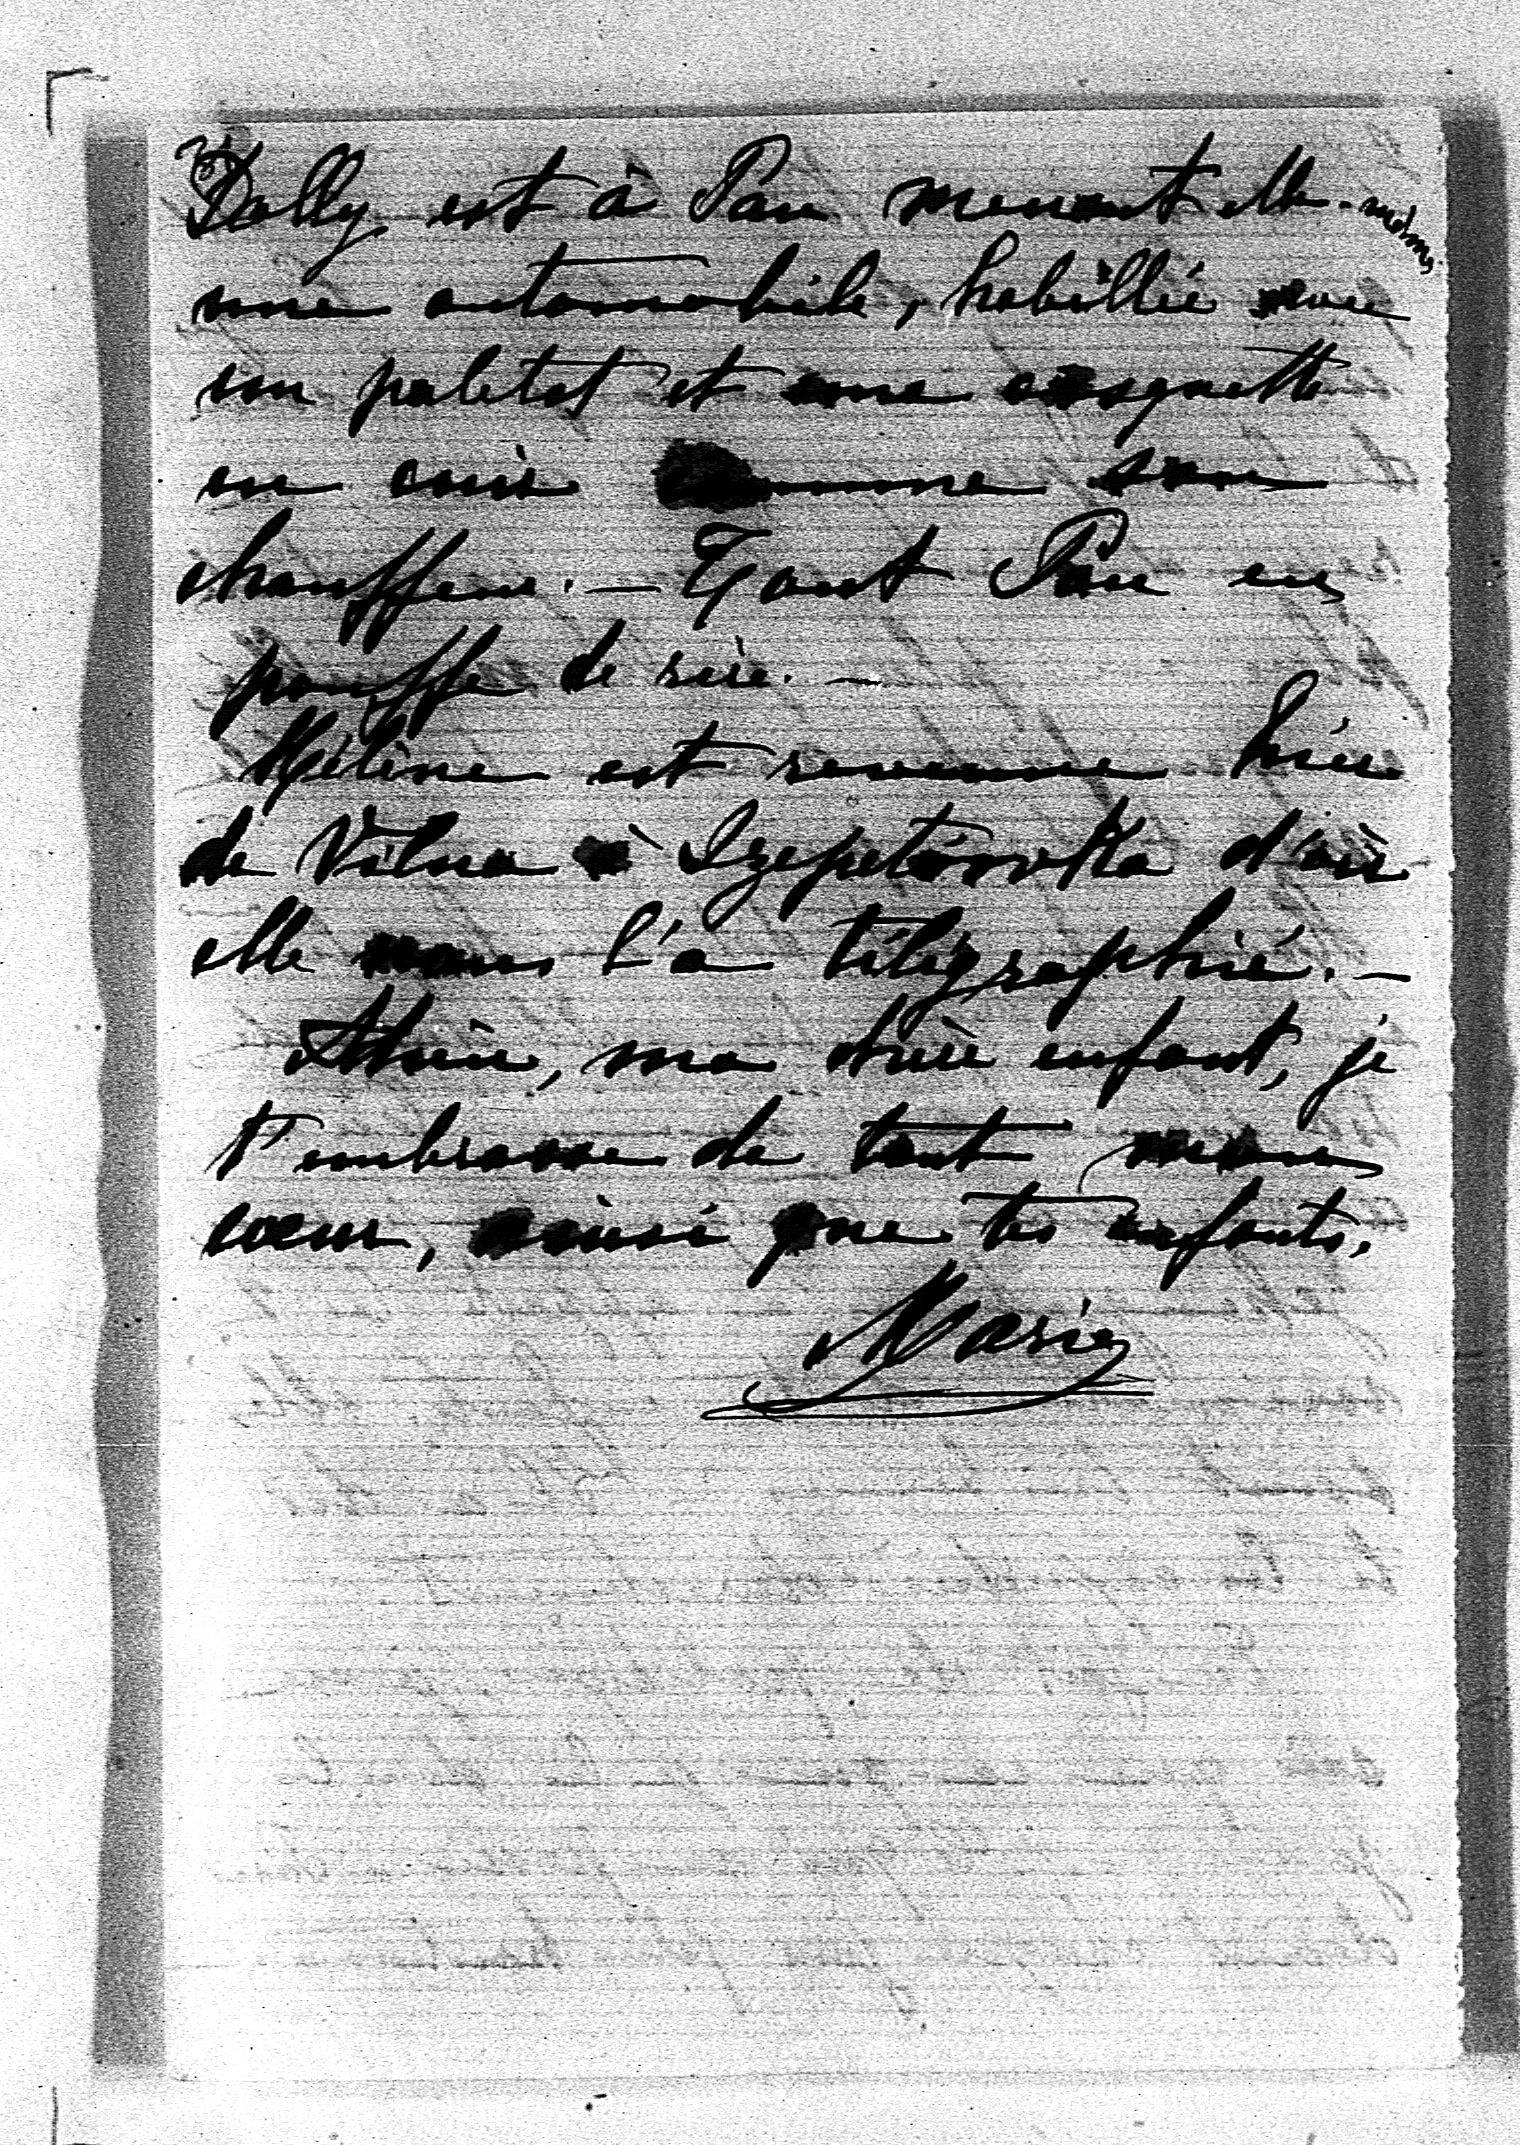 Dolly est à Pau menant elle-même
une automobile, habillée avec
un paletot et une casquette
en cuir comme son
chauffeur. — Tout Pau en
pouffe de rire. —
Hélène est revenue hier
de Vilna à Szepetówka d'où
elle nous l'a télégraphié. —
Adieu, ma chère enfant, je
t'embrasse de tout mon
cœur, ainsi que tes enfants.
Marie